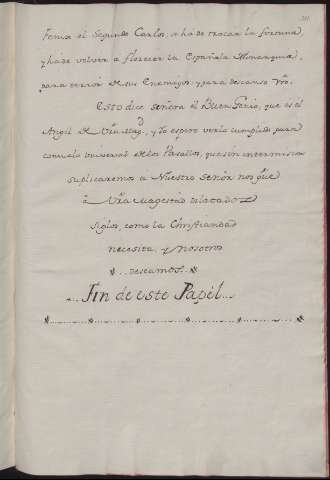 Fenix el Segundo Carlos, se ha de trocar la fortuna,
y ha de volver a florecer la Española Monarquia,
para terror de sus Enemigos, y para descanso Vro.
Esto dice señora el Buen Genio, que es el
Angel de Vra Mag.d y Yo espero verlo cumplido para
consuelo universal de los Vasallos, que sin intermision
suplicaremos a Nuestro Señor nos gue
a Vra Magestad dilatados
siglos, como la Christiandad
necesita, y nosotros
deseamos.
Fin de este Papel